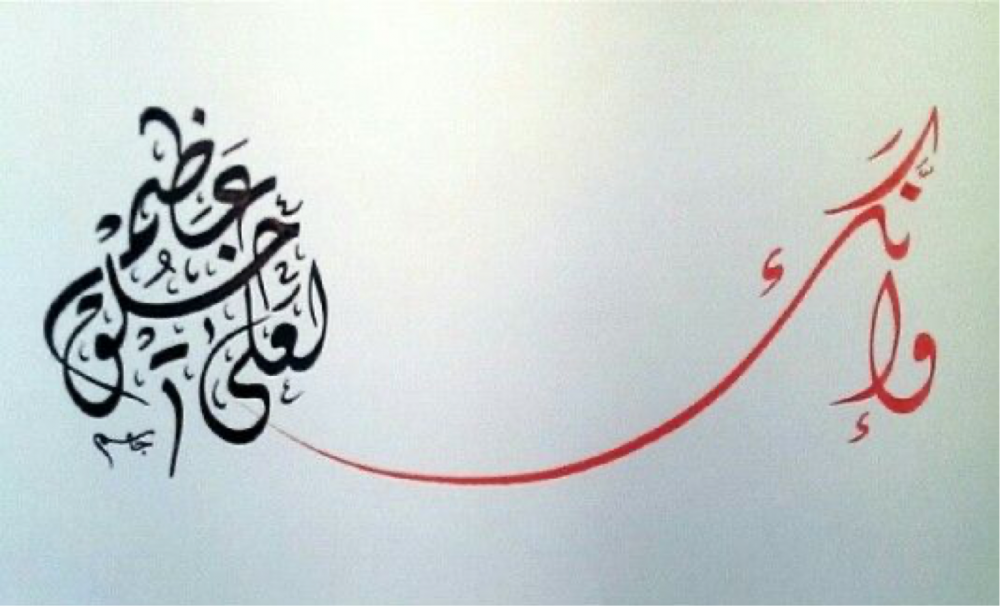 وإنك
لعلى خلق عظيم
جاسم